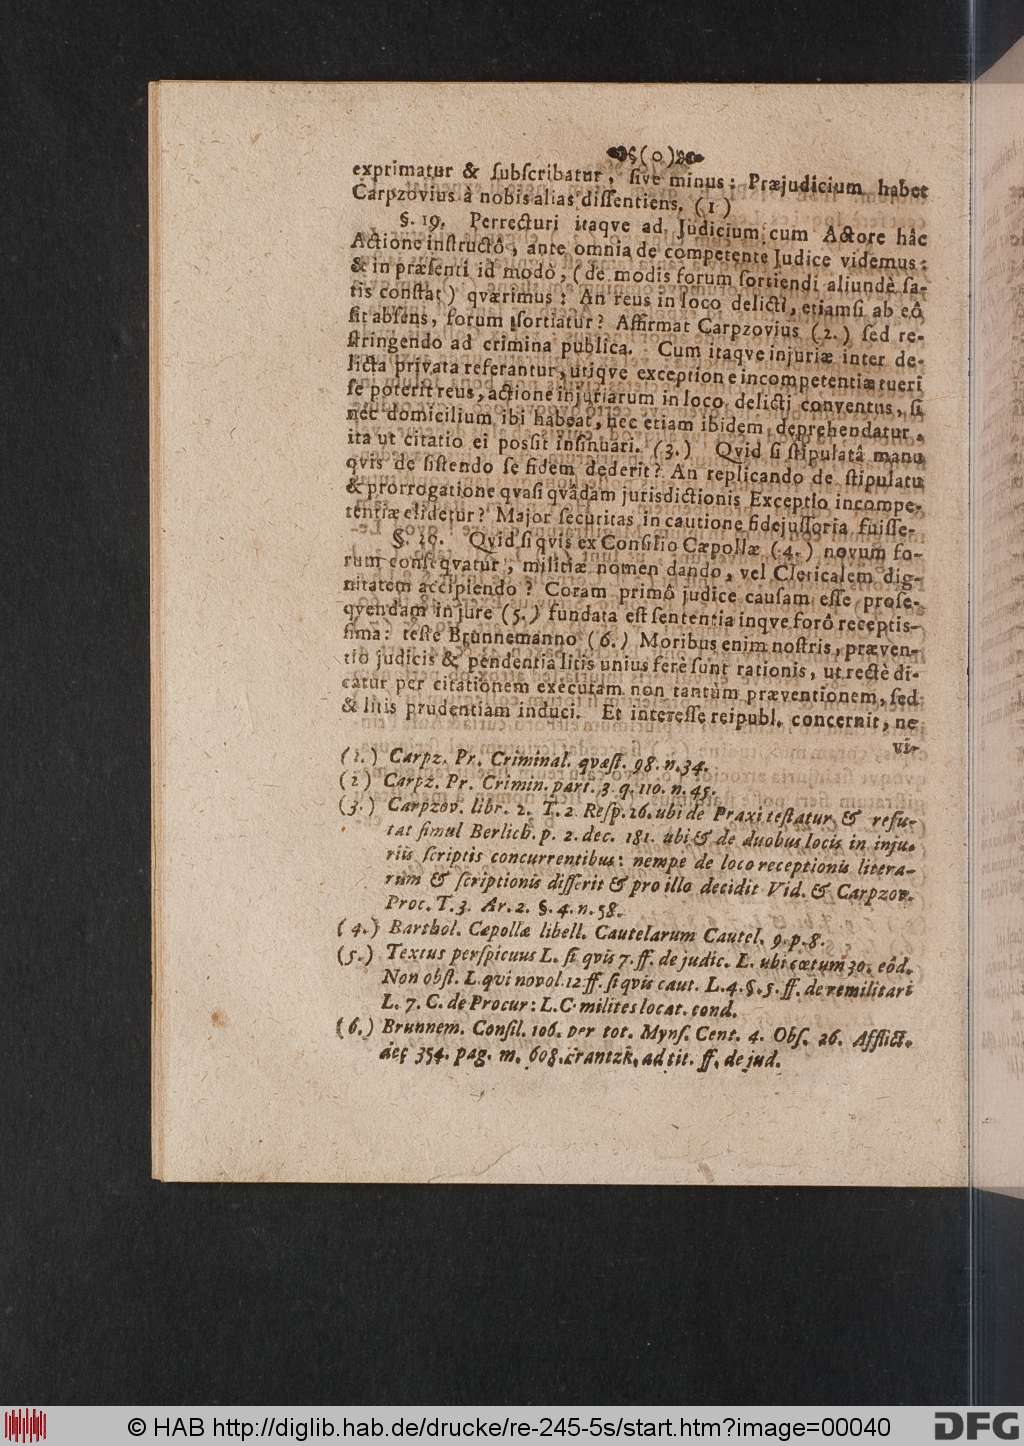 (o)
exprimatur & ſubſcribatur, ſive minus: Præjudicium habet
Carpzovius à nobis alias diſſentiens. (1)
§. 19. Perrecturi itaqve ad Judicium cum Actore hâc
Actione inſtructô, ante omnia de competente Judice videmus:
& in præſenti id modò, (de modis forum ſortiendi aliundè ſa-
tis conſtat) qværimus: An reus in loco delicti, etiamſi ab eô
ſit abſens, forum ſortiatur? Affirmat Carpzovius (2.) ſed re-
ſtringendo ad crimina publica. Cum itaqve injuriæ inter de-
licta privata referantur, utiqve exceptione incompetentiæ tueri
ſe poterit reus, actione injuriarum in loco delicti conventus, ſi
nec domicilium ibi habeat, nec etiam ibidem deprehendatur,
ita ut citatio ei poſſit inſinuari. (3.) Qvid ſi ſtipulatâ manu
qvis de ſiſtendo ſe fidem dederit? An replicando de ſtipulatu
& prorrogatione qvaſi qvâdam jurisdictionis Exceptio incompe-
tentiæ elidetur? Major ſecuritas in cautione fidejuſſoria fuiſſe-
§. 19. Qvid ſi qvis ex Conſilio Cæpollæ (4.) novum fo-
rum conſeqvatur, militiæ nomen dando, vel Clericalem dig-
nitatem accipiendo? Coram primô judice cauſam eſſe proſe-
qvendam in jure (5.) fundata eſt ſententia inqve forô receptis-
ſima: teſte Brunnemanno (6.) Moribus enim noſtris, præven-
tio judicis & pendentia litis unius ferè ſunt rationis, ut rectè di-
catur per citationem executam non tantùm præventionem, ſed
& litis prudentiam induci. Et intereſſe reipubl. concernit, ne
vi-
(1.) Carpz. Pr. Criminal. qvæſt. 98. n. 34.
(2) Carpz. Pr. Crimin. part. 3. q. 110. n. 45.
(3.) Carpzov. libr. 2. T. 2 Reſp. 26. ubi de Praxi teſtatur & refu-
tat ſimul Berlich. p. 2. dec. 181. ubi & de duobus locis in inju-
riis ſcriptis concurrentibus: nempe de loco receptionis litera-
rum & ſcriptionis differit & pro illo decidit Vid. & Carpzov.
Proc. T. 3. Ar. 2. §. 4. n. 58.
(4.) Barthol. Cæpollæ libell. Cautelarum Cautel. 9. p. 8.
(5.) Textus perſpicuus L. ſi qvis 7. ff. de judic. L. ubi cœtum 30. eôd.
Non obſt. L. qvi novol. 12 ff. ſi qvis caut. L. 4. §. 5. ff. de re militari
L. 7. C. de Procur: L. C. milites locat. cond.
(6.) Brunnem. Conſil. 106. per tot. Mynſ. Cent. 4. Obſ. 26. Afflict.
dec 354. pag. m. 608. Frantzk. ad tit. ff. de jud.
© HAB http://diglib.hab.de/drucke/re-245-5s/start.htm?image=00040
DFG